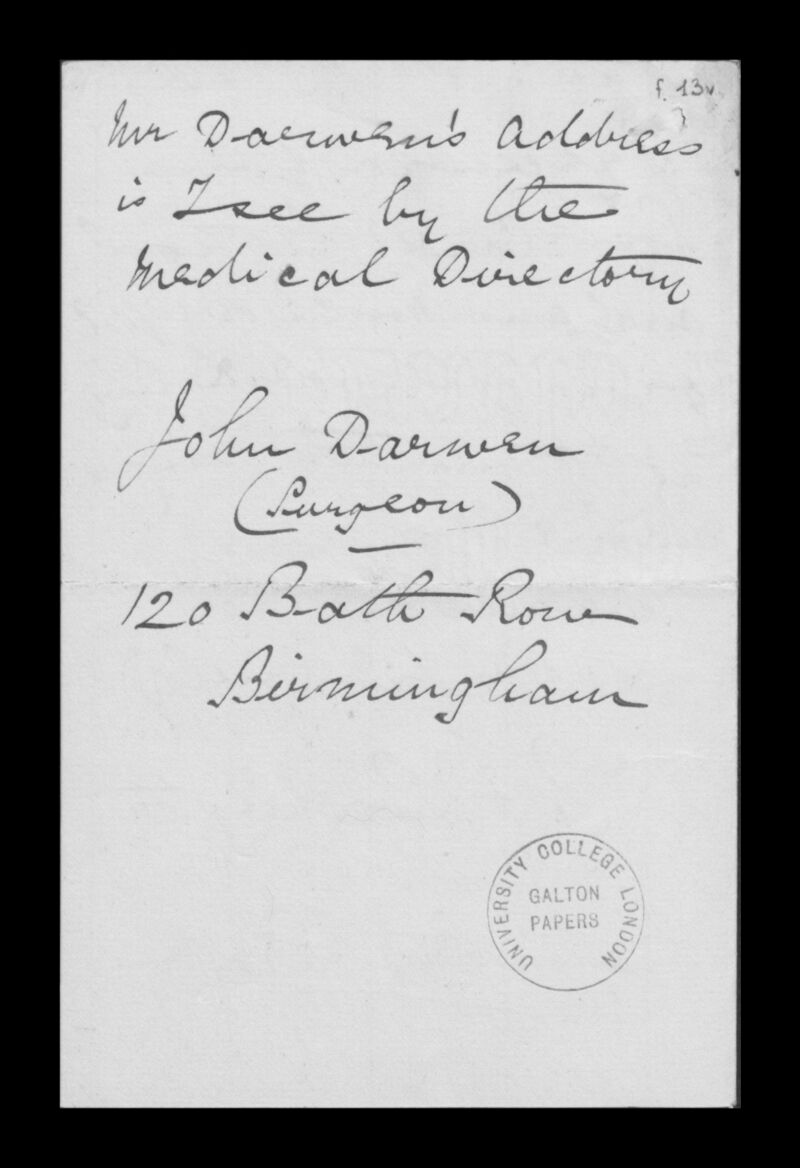 f. 13v.
Mr Darwen's address
is I see by the
Medical Directory
John Darwen
(Surgeon)
120 Bath Row
Birmingham
UNIVERSITY COLLEGE LONDON
GALTON
PAPERS